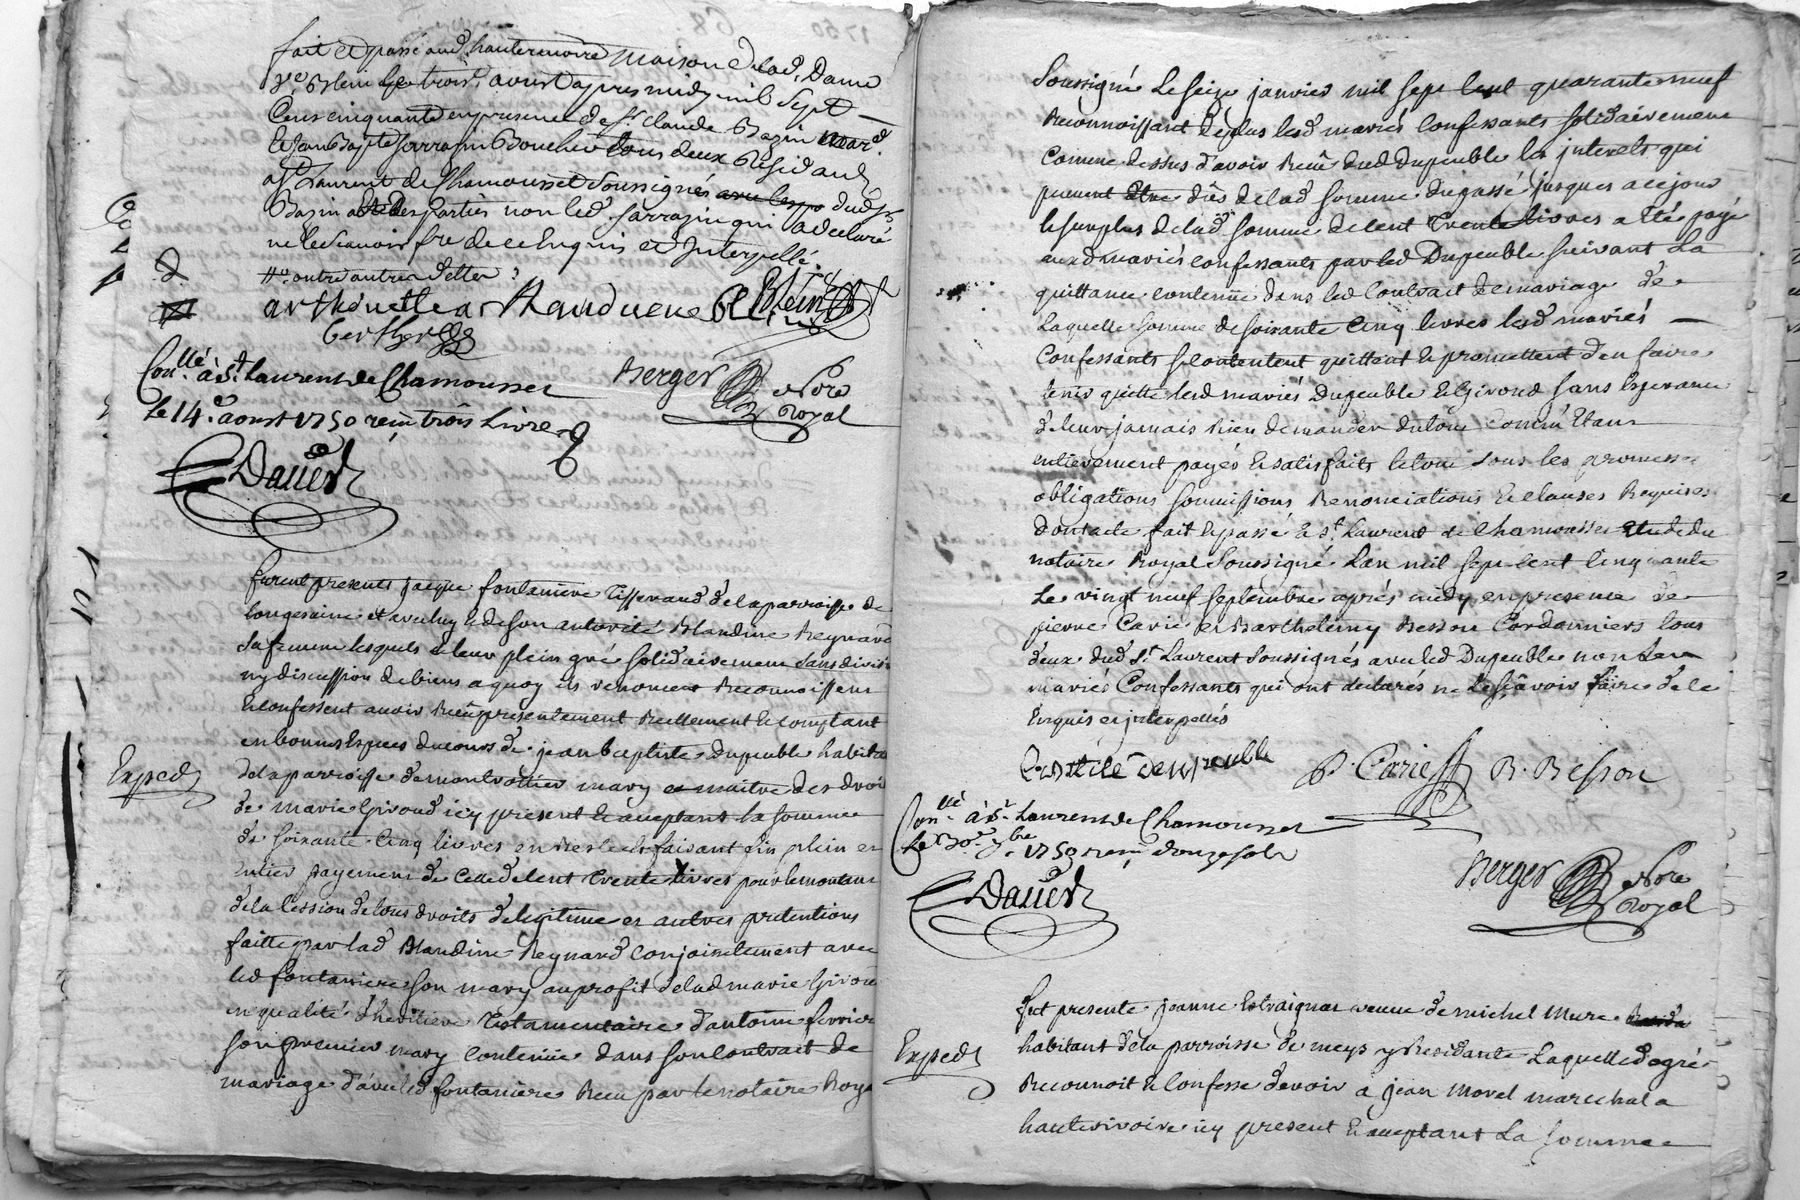 fait et passé aud. hauterivoire maison de lad. Dame
ve. Blein le trois. aoust apres midy mil sept
Cens cinquante en presence de sr. claude Bazin mar.d
et Jean Bapte sarrazin Boucher tous deux Residants
a st Laurent de Chamousset soussignés dud. sr
Bazin et les parties non led. sarrazin qui a declaré
ne le scavoir fre de ce Enquis et Interpellé.
outre autre dette
Bleïn
berther
Con.llé à St. Laurens de Chamousset
Le 14.e aoust 1750 receu trois Livre
Berger Nore
Royal
Daued
furent presents jacque fontaniere Tisserand de la parroisse de
longesaine et avec luy et de son autorité Blandine Reynard
sa femme lesquels de leur plein gré solidairement sans division
ny discussion de biens a quoy ils renoncent Reconnoissent
et confessent avoir Receü presentement Reellement et comptant
en bonnes Especes du cours de jean baptiste Dupeuble habitant
Exped
de la parroisse de montrottier mary et maitre des droits
de marie Giroud icy present et acceptant la somme
de soixante Cinq livres en Reste et faisant fin plein et
entier payement de Celle de Cent trente livres pour le montant
de la Cession de tous droits de legitime et autres pretentions
faitte par lad Blandine Reynard Conjointement avec
led fontaniere son mary au profit de lad marie Giroud
en qualité d'heritiere testamentaire d'antoine ferrier
son premier mary Contenüe dans son Contrait de
mariage d'avec led fontaniere Receu par le notaire Royal
Soussigné Le seize janvier mil sept Cent quarante neuf
Reconnoissant de plus lesd mariés Confessants solidairement
Comme dessus d'avoir Receü dud Dupeuble les interets qui
peuvent Etre dûs de lad somme du passé jusques a ce jour
le surplus de lad somme de Cent trente livres a Eté payé
auxd mariés confessants par led Dupeuble suivant La
quittance contenüe dans led Contrait de mariage de
Laquelle somme de soixante Cinq livres lesd mariés
Confessants se contentent quittent et promettent d'en faire
tenir quitte lesd mariés Dupeuble et Giroud sans Esperance
de leur jamais Rien demander du tout Comm' Etans
entierement payés et satisfaits le tout sous les promesses
obligations soumissions Renonciations et clauses Requises
dont acte fait et passé a St. Laurent de Chamousset Etude du
notaire Royal Soussigné L'an mil sept Cent Cinquante
Le vingt neuf septembre aprés midy en presence de
pierre Carie et Barthelemy Besson Cordonniers tous
deux dud St. Laurent soussignés avec led Dupeuble non Les
mariés Confessants qui ont declarés ne Le sçavoir faire de ce
Enquis et interpellés
P. Carie B. Besson
Con.llé à St. Laurens de Chamousset
Le 30.e 7bre 1750 receu douze sols
Daued
Berger Nore
Royal
fut presente jeanne Estraignat veuve de michel Mure
Exped
habitant de la parroisse de meys y Residante Laquelle de gré
Reconnoit et Confesse devoir a jean Morel marechal a
hauterivoire icy present et acceptant La somme